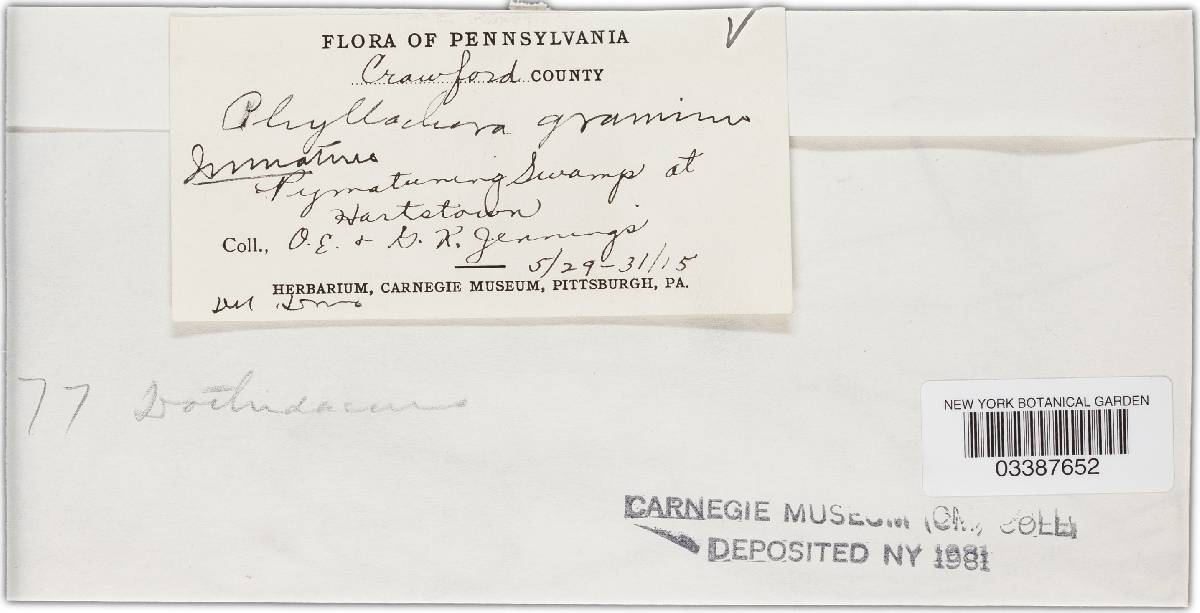 FLORA OF PENNSYLVANIA
Crawford COUNTY
Phyllachora graminis
Immature
Pymatuning Swamp at
Hartstown
Coll., O.E. & G.K. Jennings
5/29-31/15
HERBARIUM, CARNEGIE MUSEUM, PITTSBURGH, PA.
77
NEW YORK BOTANICAL GARDEN
03387652
CARNEGIE MUSEUM (CM) COLL
DEPOSITED NY 1981